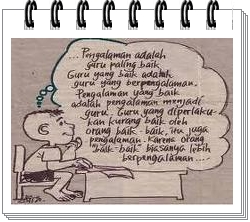 ... Pengalaman adalah
guru paling baik.
Guru yang baik adalah
guru yang berpengalaman.
Pengalaman yang baik
adalah pengalaman menjadi
guru. Guru yang diperlaku-
kan kurang baik oleh
orang baik-baik, itu juga
pengalaman. Karena orang
"baik-baik" biasanya lebih
berpengalaman ...